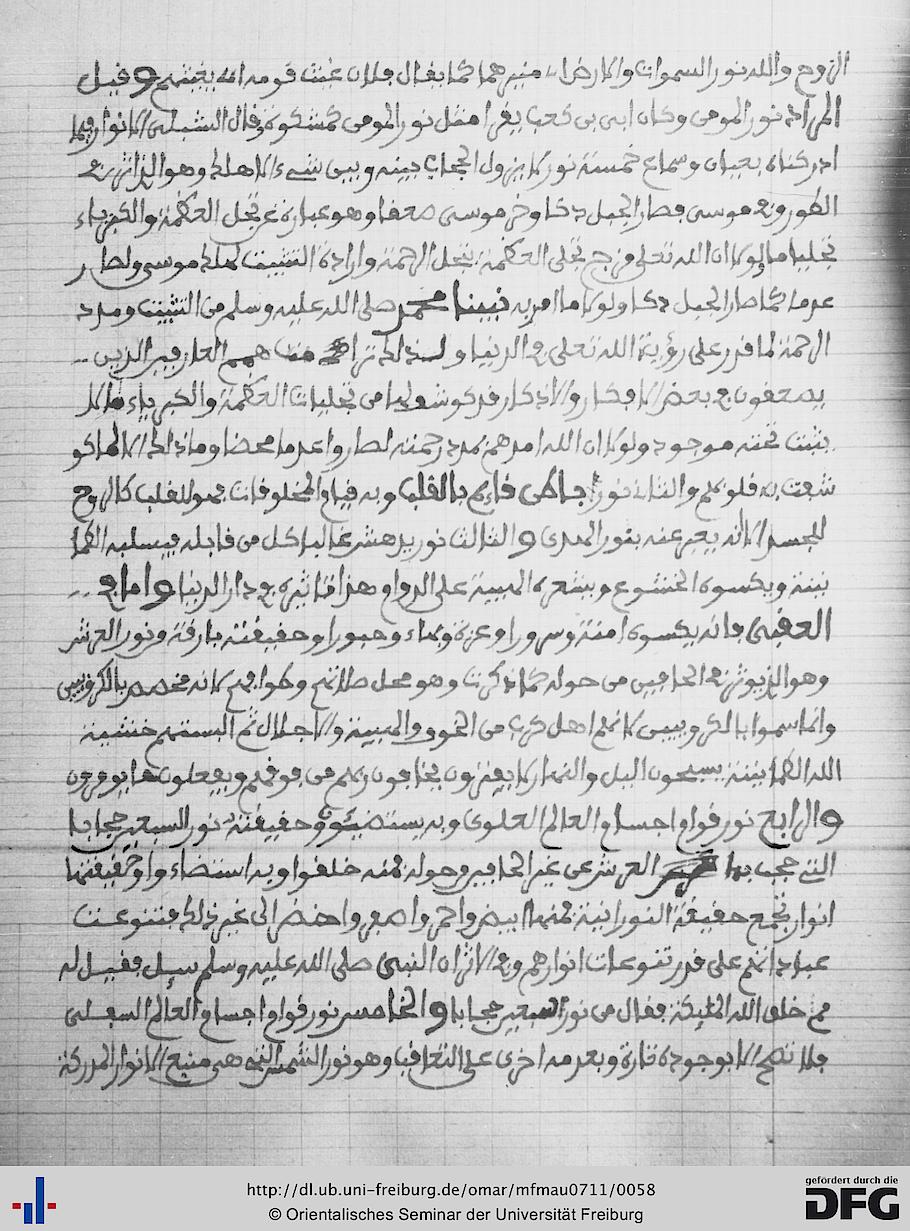 الزوج والله نور السموات والارض اي منيرهما كما يقال فلان غيث قومه اي يغيثهم وقيل
المراد نور المومن وكان ابي بن كعب يقرا مثل نور المومن كمشكوة وقال الشبلي الانوار فيما
ادركناه بعيان وسماع خمسة نور لا يزول الحجاب بينه وبين شيء الا هلك وهو الذي اثر في
الطور وفي موسى فصار الجبل دكا وخر موسى صعقا وهو عبارة عن تجل العظمة والكبرياء
تجليا ما لولا ان الله تعلى مزج تجلى العظمة بتجل الرحمة وارادة التثبيت لهلك موسى ولصار
عدما كما صار الجبل دكا ولولا ما امر به نبينا محمد صلى الله عليه وسلم من التثبيت ومدد
الرحمة لما قدر على رؤية الله تعلى في الدنيا ولذلك ترا همم العارفين الذين
يصعقون في بعض الافكار والاذكار قد كوشفوا من تجليات العظمة والكبرياء ما لا
يثبت تحته موجود ولولا ان الله امدهم بمدد رحمته لصاروا عدما محضا وما ذلك الا لما كو
شفت به قلوبهم والثاني نور باطن قائم بالقلب وبه قيام المخلوقات فهو للقلب كالروح
للجسد الا انه يعبر عنه بنور الهدى والثالث نور يدهش غالبا كل من قابله فيسلبه الطما
نينة ويكسوه الخشوع ويشعره الهيبة على الدوام هذا تاثيره في دار الدنيا واما في
العقبى فانه يكسوه امنة وسرورا وعزة وبهاء وحبورا وحقيقته بارقة من نور العرش
وهو الذي يوثر في الحافين من حوله كما ذكرنا وهو محل صلاتهم وطوافهم لانه مخصص بالكروبيين
وانما سموا بالكروبيين لانهم اهل كرب من الخوف والهيبة والاجلال ثم البستهم خشية
الله الطمانينة يسبحون اليل والنهار لا يفترون يخافون ربهم من فوقهم ويفعلون ما يومرون
والرابع نور قوام اجسام العالم العلوي وبه يستضيئون وحقيقته نور السبعين حجابا
التي حجب بها العرش عن غير الحافين حوله فمنه خلقوا وبه استضاءوا وحقيقتها
انوار تجمع حقيقة النورانية فمنها ابيض واحمر واصفر واخضر الى غير ذلك فتنوعت
عباداتهم على قدر تنوعات انوارهم وفي الاثر ان النبي صلى الله عليه وسلم سيل فقيل له
مم خلق الله الملئكة فقال من نور السبعين حجابا والخامس نور قوام اجسام العالم السفلى
فلا تصح الا بوجوده تارة وبعدمه اخرى على التعاقب وهو نور الشمس التي هي منبع الانوار المدركة
http://dl.ub.uni-freiburg.de/omar/mfmau0711/0058
© Orientalisches Seminar der Universität Freiburg
gefördert durch die
DFG